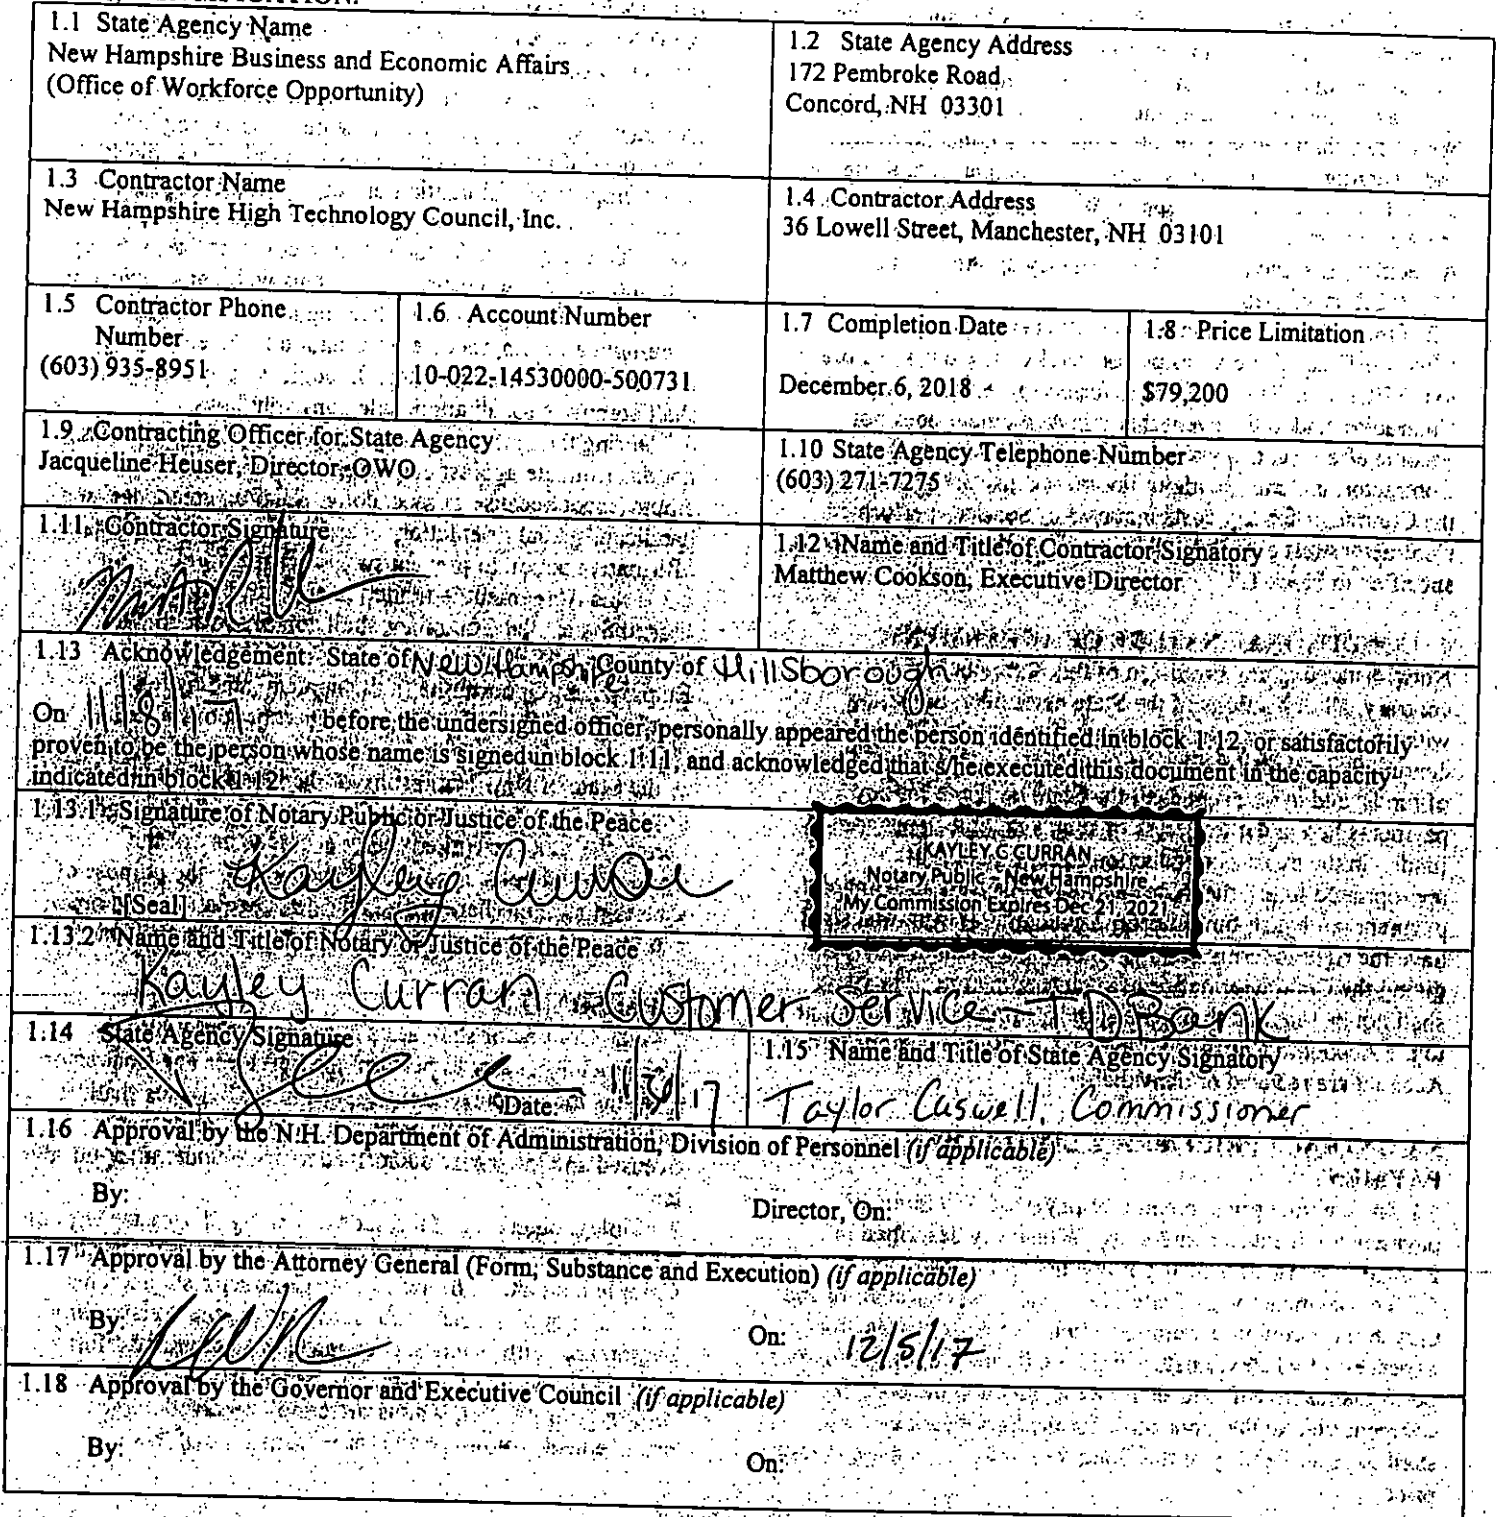 1.1 State Agency Name
New Hampshire Business and Economic Affairs
(Office of Workforce Opportunity)
1.2 State Agency Address
172 Pembroke Road
Concord, NH 03301
1.3 Contractor Name
New Hampshire High Technology Council, Inc.
1.4 Contractor Address
36 Lowell Street, Manchester, NH 03101
1.5 Contractor Phone
Number
(603) 935-8951
1.6 Account Number
10-022-14530000-500731
1.7 Completion Date
December 6, 2018
1.8 Price Limitation
$79,200
1.9 Contracting Officer for State Agency
Jacqueline Heuser, Director, OWO
1.10 State Agency Telephone Number
(603) 271-7275
1.11 Contractor Signature
1.12 Name and Title of Contractor Signatory
Matthew Cookson, Executive Director
1.13 Acknowledgement: State of New Hampshire County of Hillsborough
On 11/8/17 before the undersigned officer, personally appeared the person identified in block 1.12, or satisfactorily
proven to be the person whose name is signed in block 1.11, and acknowledged that s/he executed this document in the capacity
indicated in block 1.12.
1.13.1 Signature of Notary Public or Justice of the Peace
Kayley Curran
[Seal]
KAYLEY G CURRAN
Notary Public - New Hampshire
My Commission Expires Dec 21, 2021
1.13.2 Name and Title of Notary or Justice of the Peace
Kayley Curran Customer Service - TD Bank
1.14 State Agency Signature
Date:
1.15 Name and Title of State Agency Signatory
Taylor Caswell, Commissioner
1.16 Approval by the N.H. Department of Administration, Division of Personnel (if applicable)
By:
Director, On:
1.17 Approval by the Attorney General (Form, Substance and Execution) (if applicable)
By:
On: 12/5/17
1.18 Approval by the Governor and Executive Council (if applicable)
By:
On: